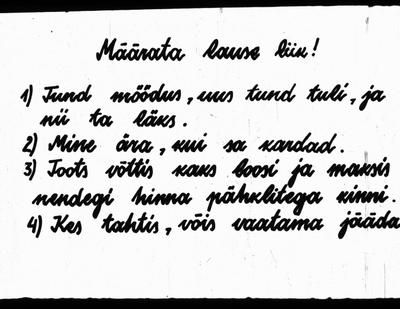 Määrata lause liik!
1) Tund möödus, uus tund tuli, ja
nii ta läks.
2) Mine ära, kui sa kardad.
3) Toots võttis kaks loosi ja maksis
nendegi hinna pähklitega kinni.
4) Kes tahtis, võis vaatama jääda